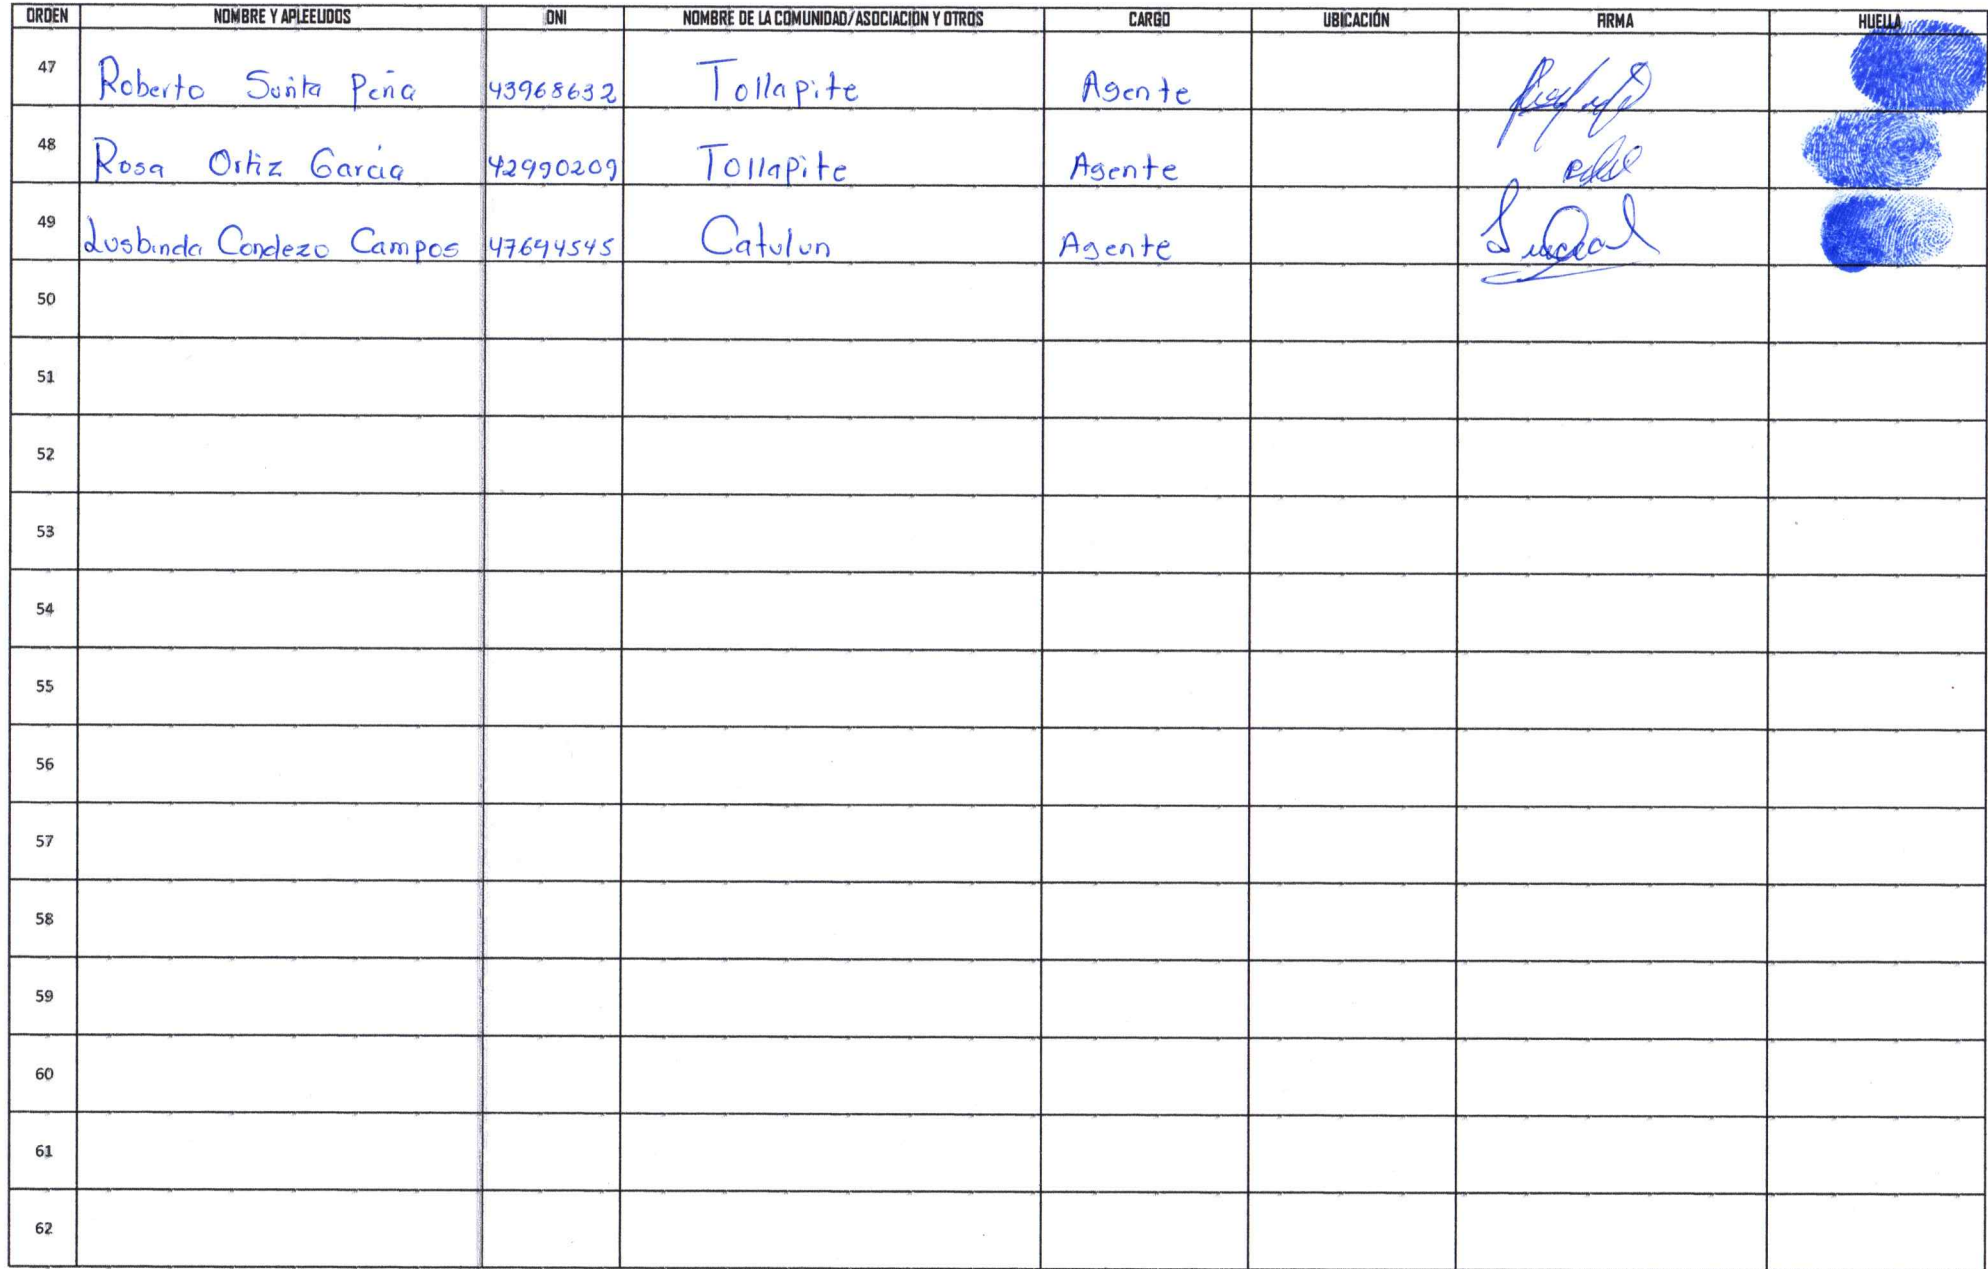 ORDEN NOMBRE Y APLEELIDOS DNI NOMBRE DE LA COMUNIDAD/ASOCIACION Y OTROS CARGO UBICACIÓN FIRMA HUELLA
47 Roberto Peña 43968632 Tollapite Agente
48 Rosa Ortiz García 42990209 Tollapite Agente
49 Lusbinda Condezo Campos 47644545 Catulun Agente
50
51
52
53
54
55
56
57
58
59
60
61
62